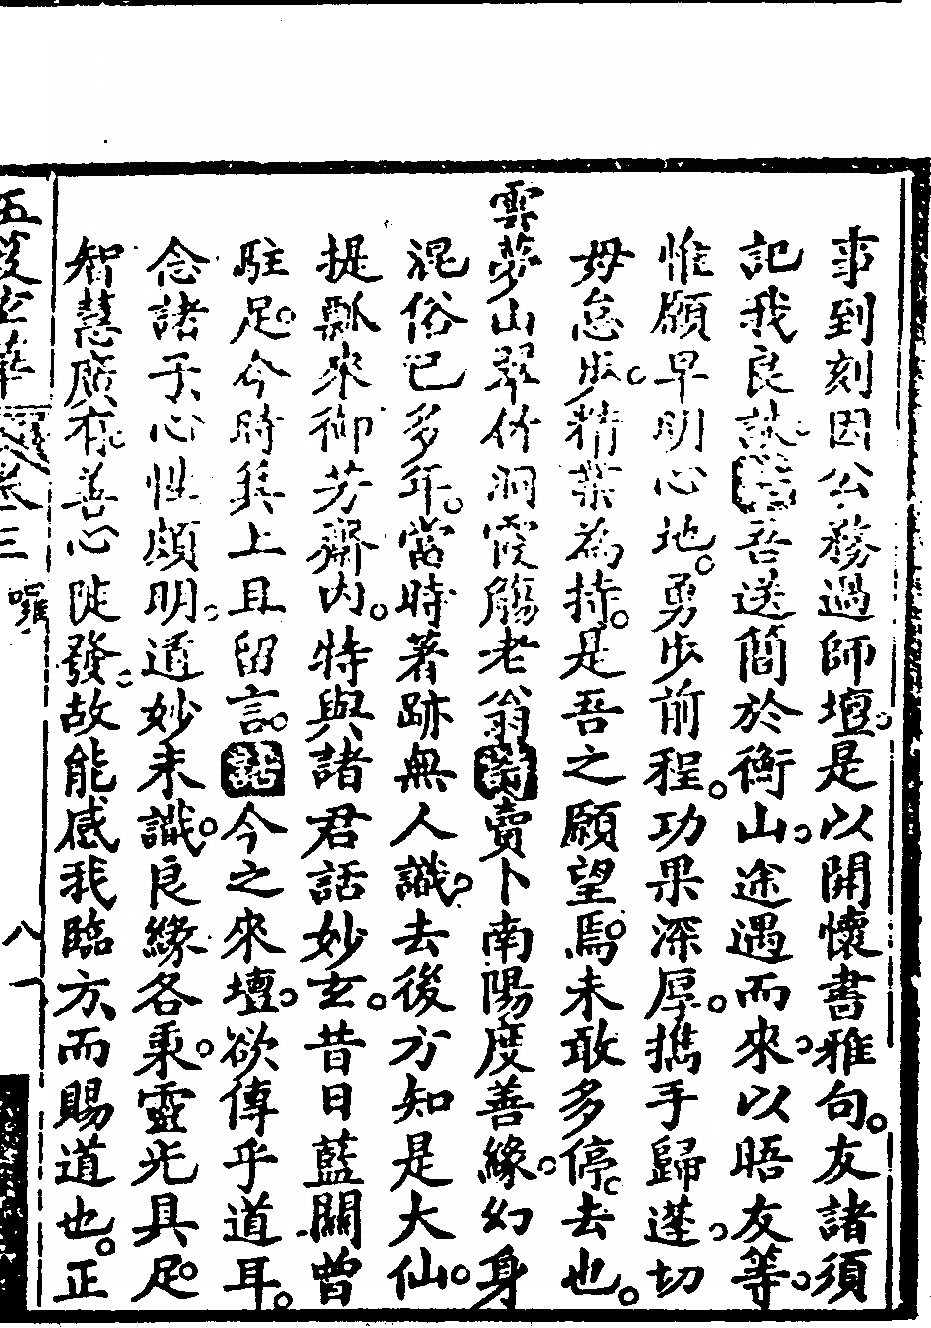 事到刻因公務過師壇是以開懷書雅句友諸須
記我良訣吾送簡於衡山途遇而來以晤友等
惟願早明心地勇步前程功果深厚攜手歸蓬切
毋怠步精業為持是吾之願望焉未敢多停去也
雲夢山翠竹洞霞觴老翁詩賣卜南陽度善緣幻身
混俗已多年當時著跡無人識去後方知是大仙
提瓢來御芳齋內特與諸君話妙玄昔日藍關曾
駐足今時奚上且留言話今之來壇欲傳乎道耳
念諸子心性頗明道妙未識良緣各秉靈光具足
智慧廣存善心陡發故能感我臨方而賜道也正
卷三
八一